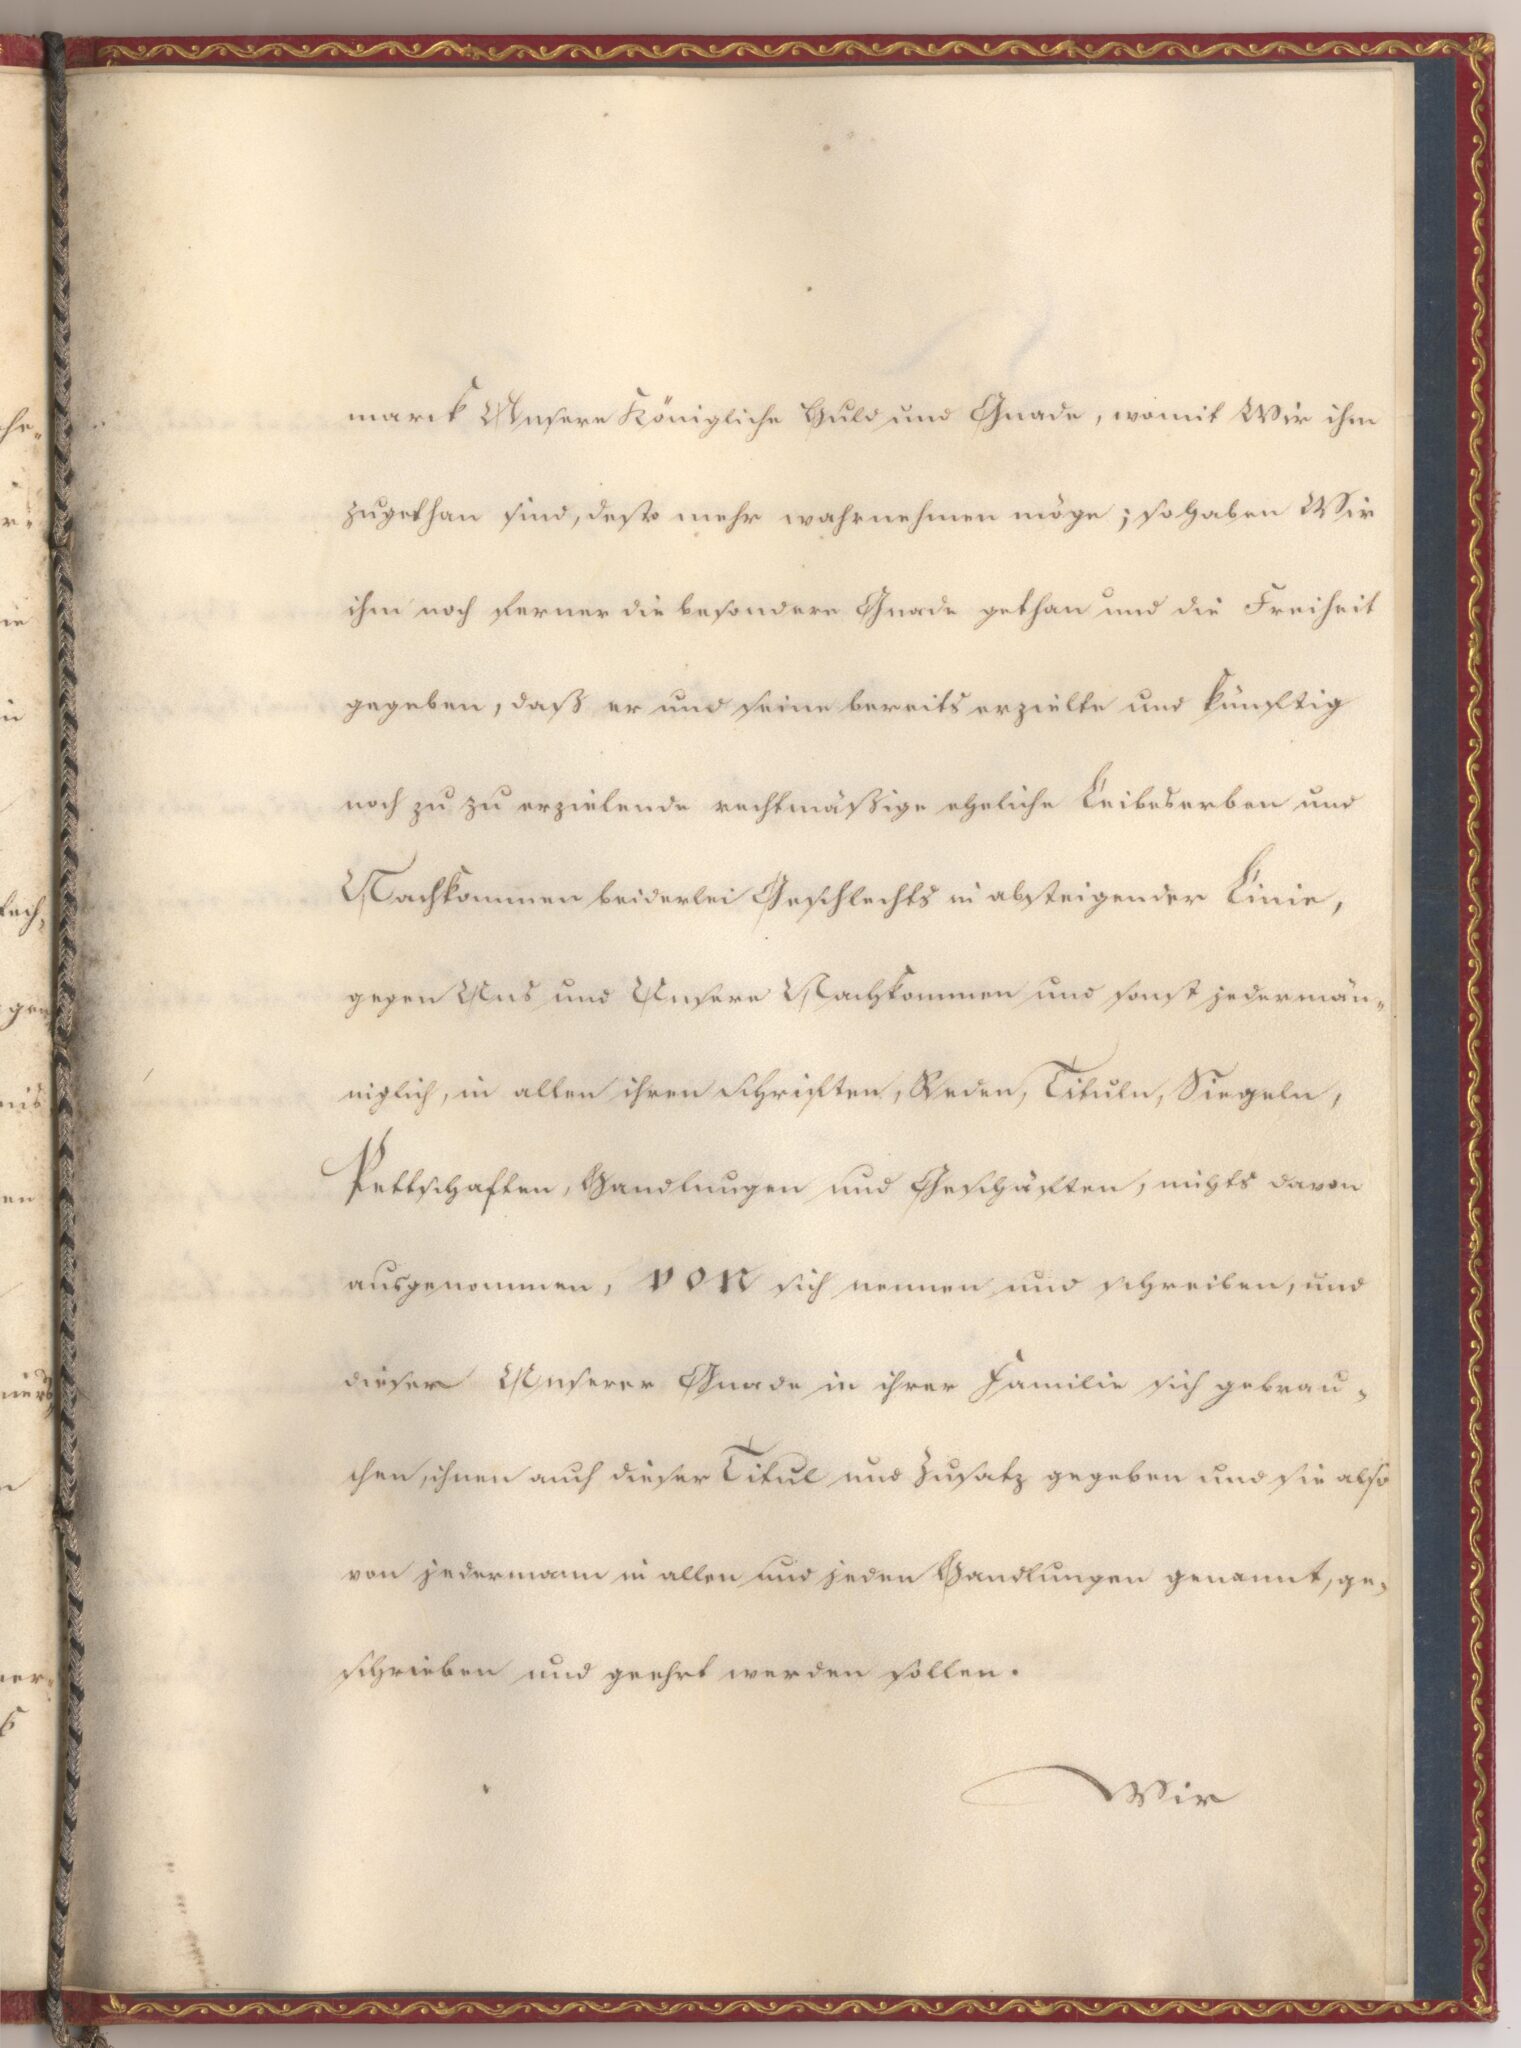 marck Unsere Königliche Huld und Gnade, womit Wir ihm
zugethan sind, desto mehr wahrnehmen möge; so haben Wir
ihm noch ferner die besondere Gnade gethan und die Freiheit
gegeben, daß er und seine bereits erzielte und künftig
noch zu zu erzielende rechtmäßige eheliche Leibeserben und
Nachkommen beiderlei Geschlechts in absteigender Linie,
gegen Uns und Unsere Nachkommen und sonst jedermän-
niglich, in allen ihren Schriften, Reden, Tituln, Siegeln,
Pettschaften, Handlungen und Geschäften, nichts davon
ausgenommen, von sich nennen und schreiben, und
dieser Unserer Gnade in ihrer Familie sich gebrau-
chen, ihnen auch dieser Titul und Zusatz gegeben und sie also
von jedermann in allen und jeden Handlungen genannt, ge-
schrieben und geehrt werden sollen.
Wir